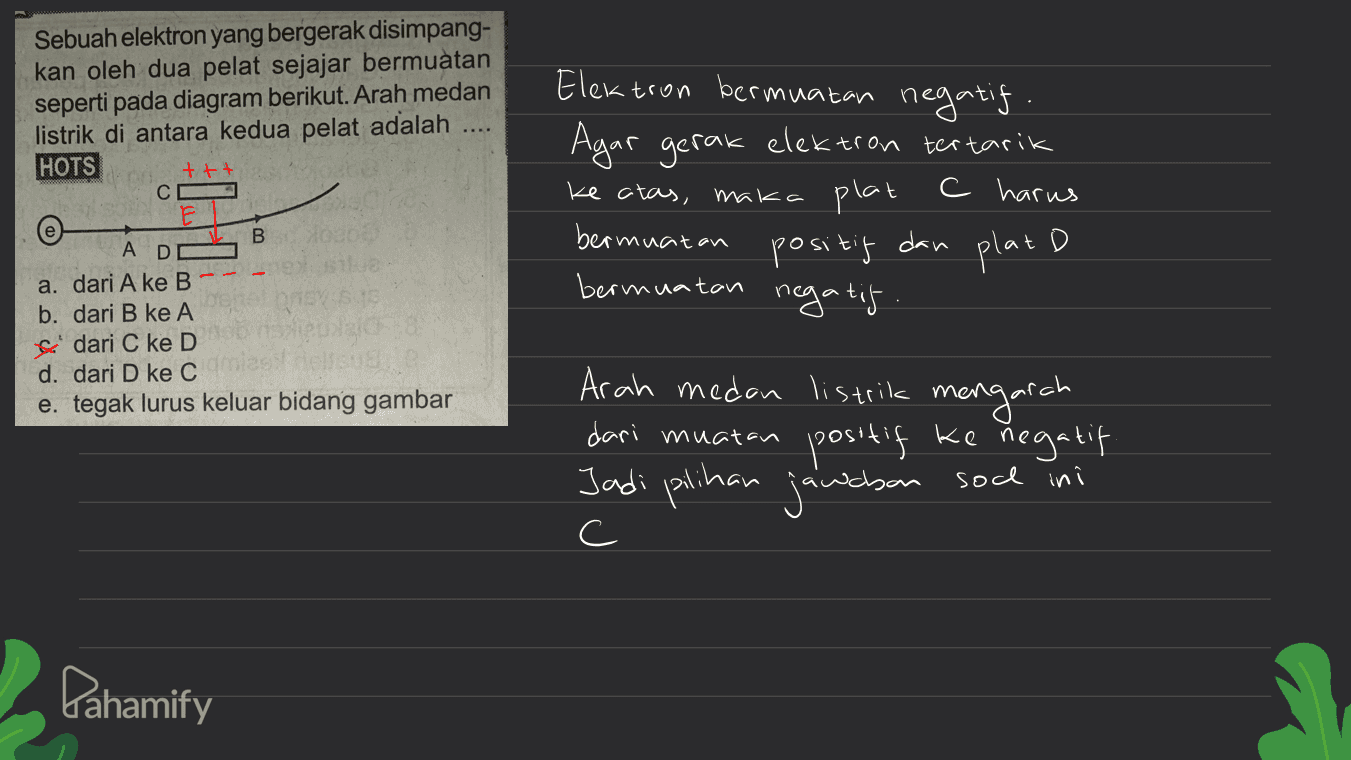 Sebuah elektron yang bergerak disimpang-
kan oleh dua pelat sejajar bermuatan
seperti pada diagram berikut. Arah medan
listrik di antara kedua pelat adalah ....
HOTS
+ + +
C
E
e
A
D
B
- - -
a. dari A ke B
b. dari B ke A
c. dari C ke D
d. dari D ke C
e. tegak lurus keluar bidang gambar
Elektron bermuatan negatif.
Agar gerak elektron tertarik
ke atas, maka plat C harus
bermuatan positif dan plat D
bermuatan negatif.
Arah medan listrik mengarah
dari muatan positif ke negatif.
Jadi pilihan jawaban soal ini
C
Pahamify